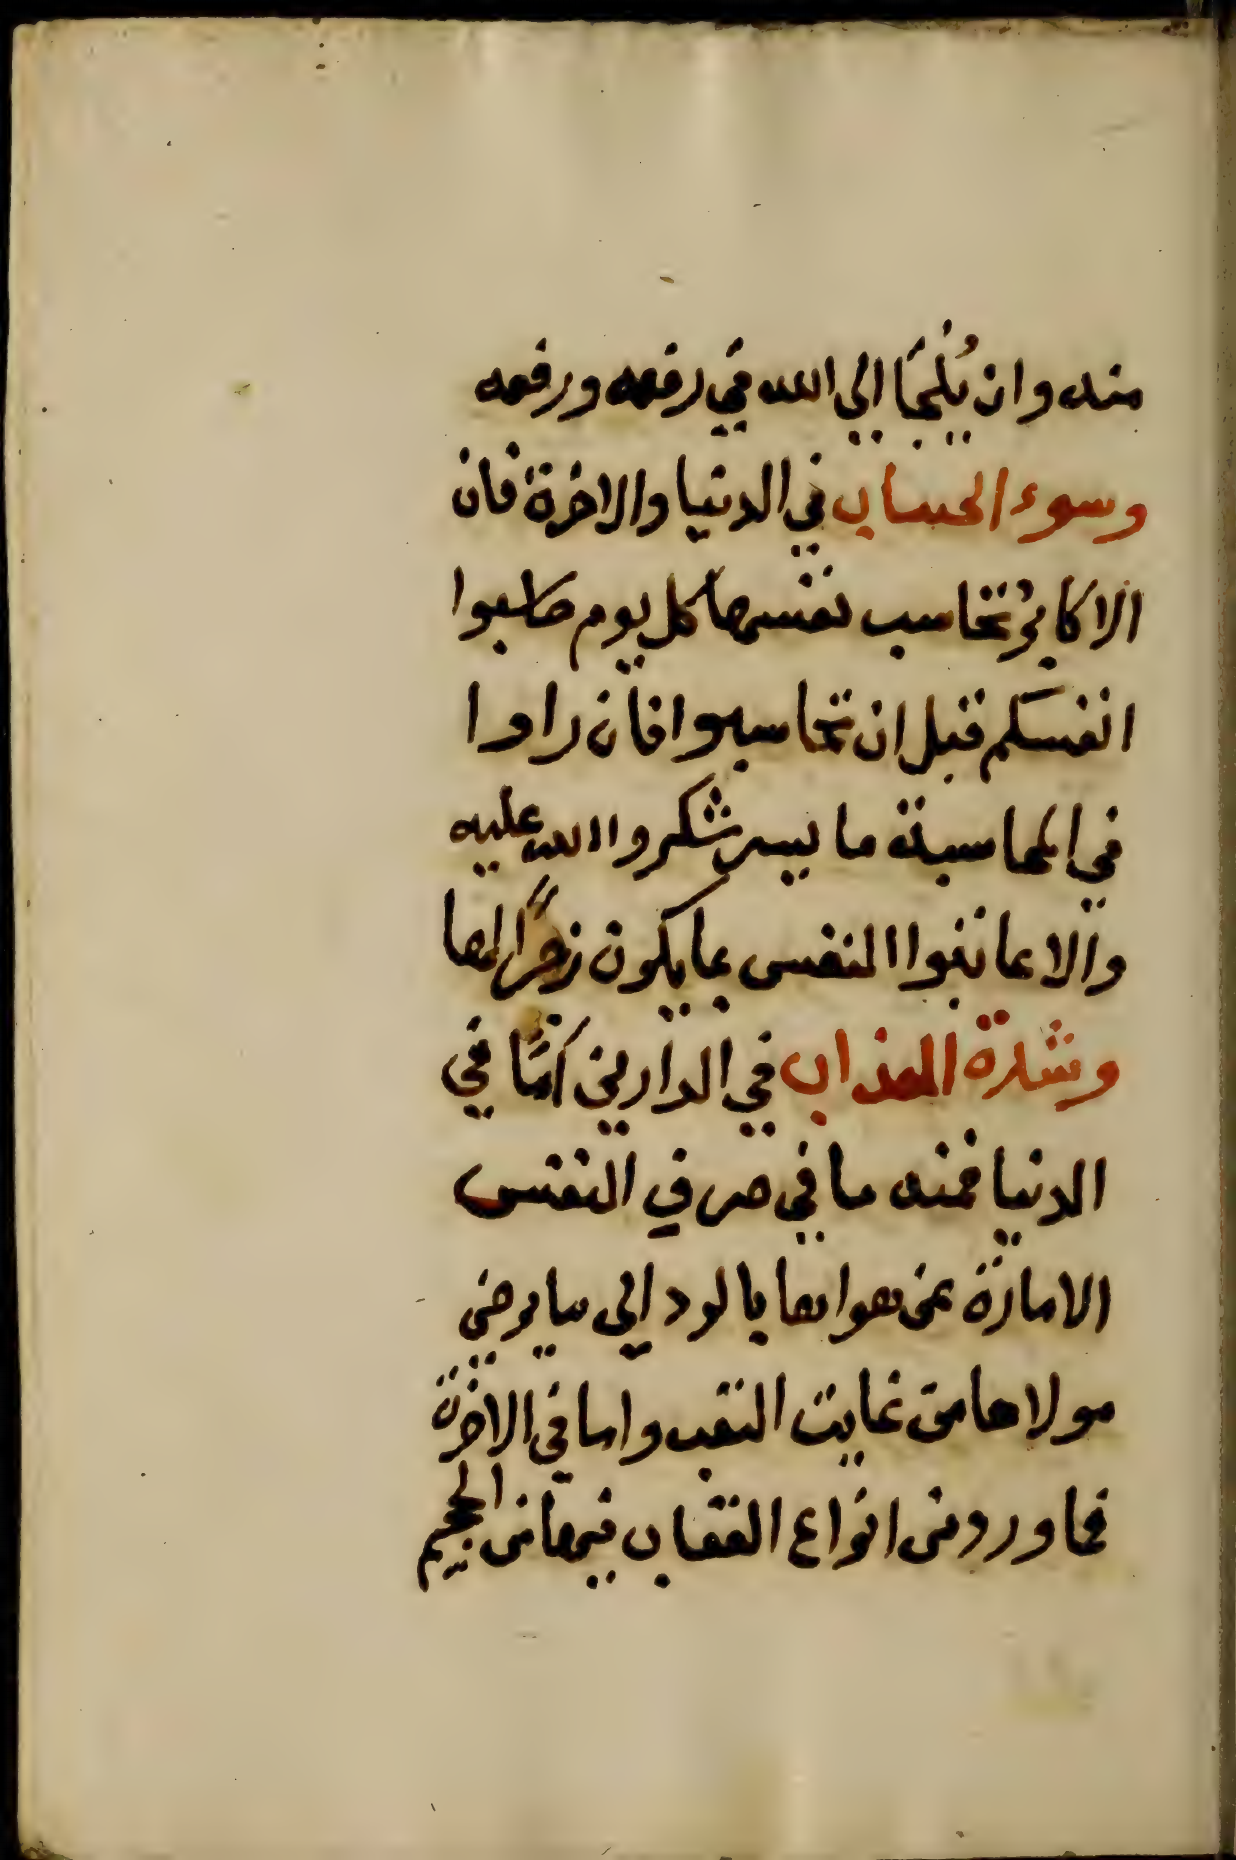 منه وان يُلجَأ الي الله في رفعه ورفعه
وسوء الحساب في الدنيا والاخرة فان
الاكابرُ تحاسب نفسها كل يوم حاسبوا
انفسكم قبل ان تحاسبوا فان راوا
في المحاسبة ما يسر شكروا الله عليه
والا عاتبوا النفس بما يكون زجرًا لها
وشدة العذاب في الدارين امّا في
الدنيا فمنه ما في صرف النفس
الامارة عن هواها بالود الي ما يرضي
مولاها من غايت التعب واما في الاخرة
فما ورد من انواع العقاب فيها من الجحيم